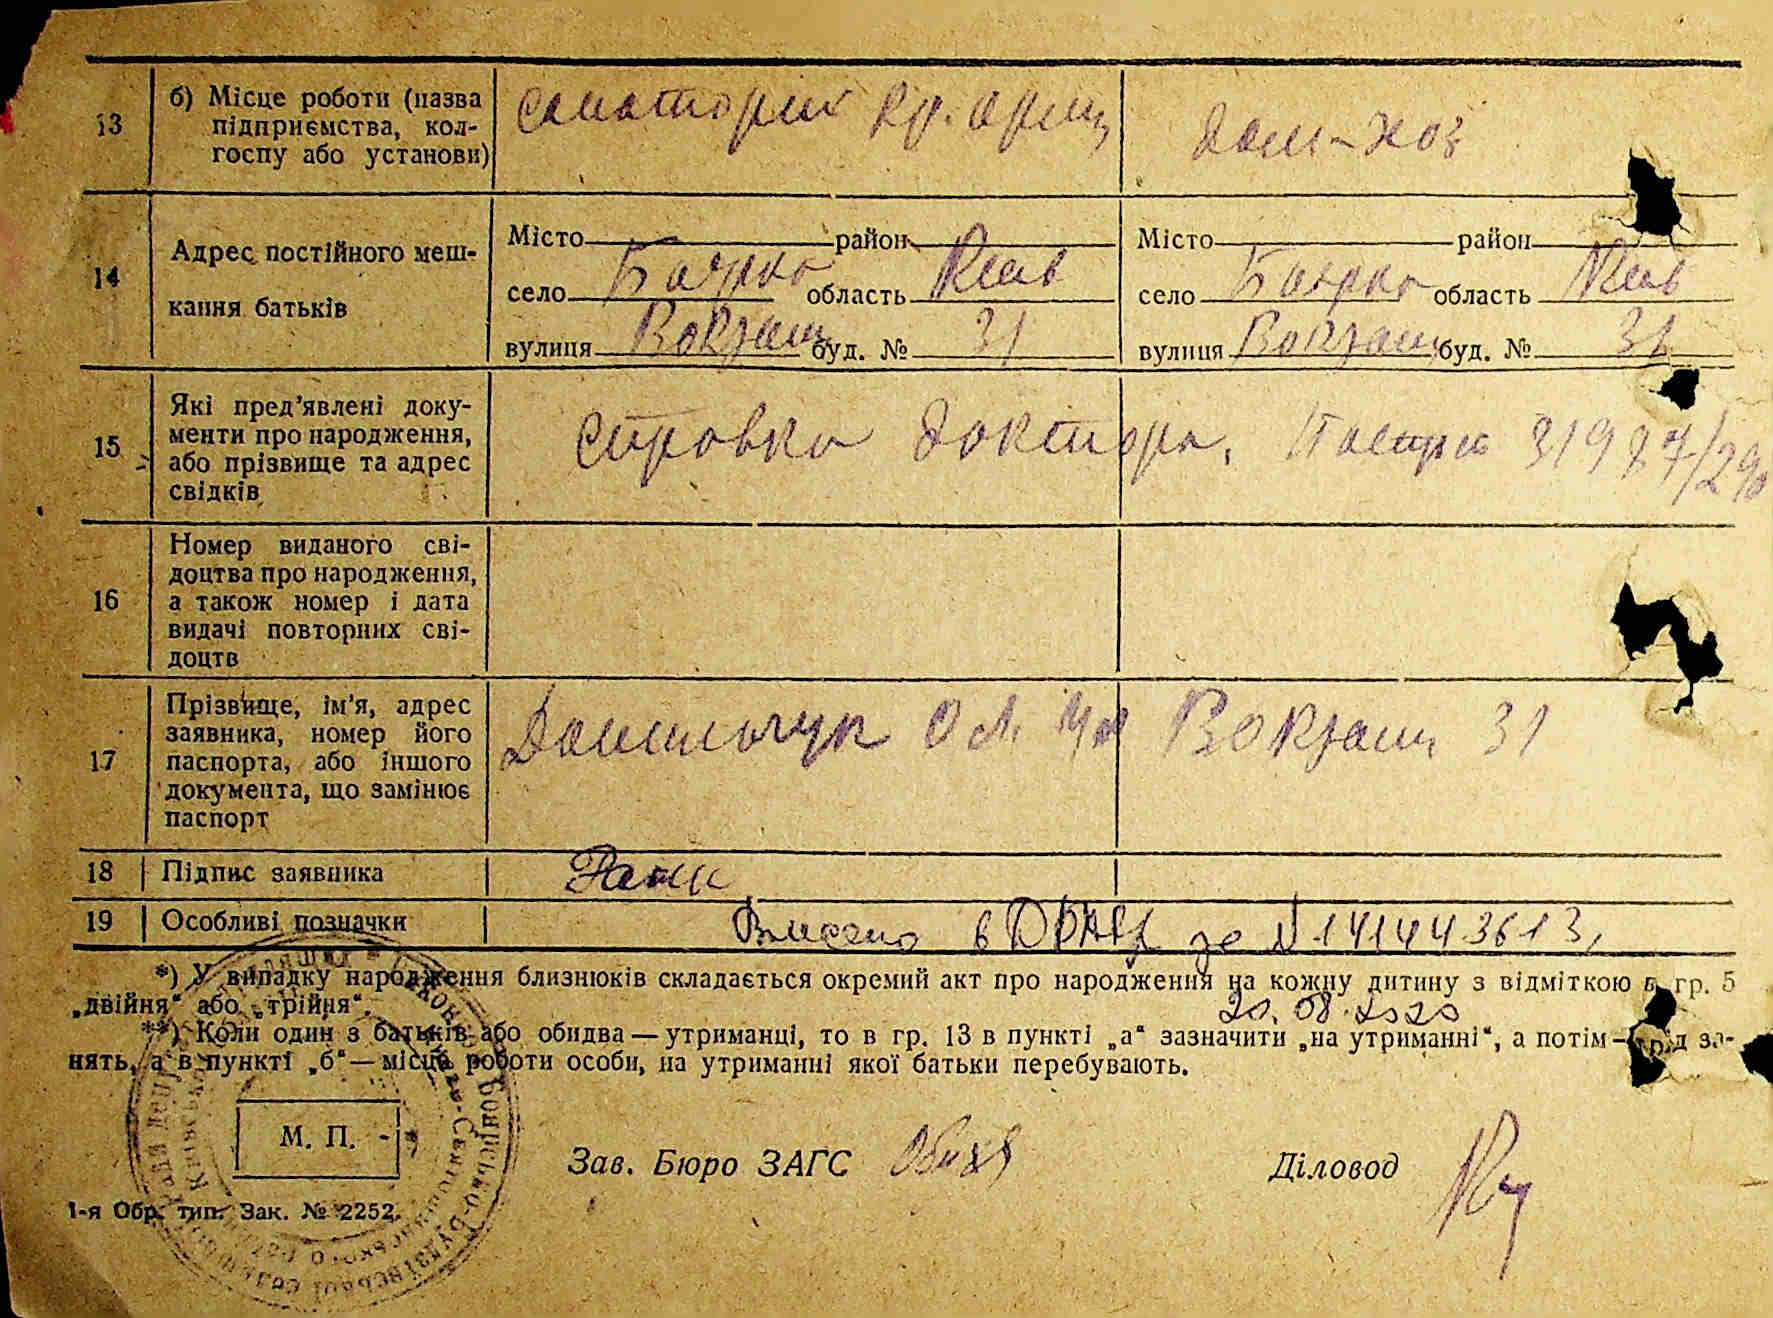 13
б) Місце роботи (назва
підприємства, кол-
госпу або установи)
дом-хоз
14
Адрес постійного меш-
кання батьків
Місто район
село Боярка область Київ
вулиця буд. № 31
Місто район
село Боярка область Київ
вулиця буд. № 31
15
Які пред’явлені доку-
менти про народження,
або прізвище та адрес
свідків
справка доктора,
16
Номер виданого сві-
доцтва про народження,
а також номер і дата
видачі повторних сві-
доцтв
17
Прізвище, ім’я, адрес
заявника, номер його
паспорта, або іншого
документа, що замінює
паспорт
31
18 Підпис заявника
19 Особливі позначки
Внесено в ДРАЦС за №1414443613,
20.08.2020
*) У випадку народження близнюків складається окремий акт про народження на кожну дитину з відміткою в гр. 5
„двійня“ або „трійня“.
**) Коли один з батьків або обидва — утриманці, то в гр. 13 в пункті „а“ зазначити „на утриманні“, а потім — рід за-
нять, а в пункті „б“ — місце роботи особи, на утриманні якої батьки перебувають.
М. П.
Зав. Бюро ЗАГС
Діловод
1-я Обр. тип. Зак. № 2252.